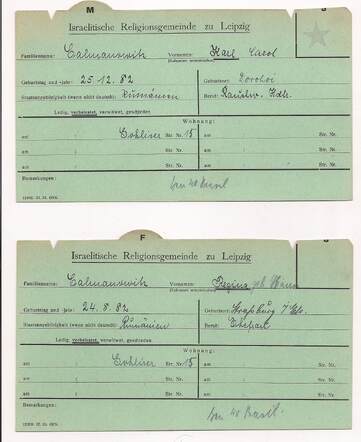 M
Israelitische Religionsgemeinde zu Leipzig
Familienname: Calmanowitz Vornamen: Karl
Geburtstag und -jahr: 25.12.82 Geburtsort: Dorohoi
Staatsangehörigkeit (wenn nicht deutsch): Rumänien Beruf: Hdlr.
Ledig, verheiratet, verwitwet, geschieden
Wohnung:
am Gohliser Str. Nr. 15 am Str. Nr.
am Str. Nr. am Str. Nr.
am Str. Nr. am Str. Nr.
Bemerkungen:
F
Israelitische Religionsgemeinde zu Leipzig
Familienname: Calmanowitz Vornamen: Regina geb.
Geburtstag und -jahr: 24.8.82 Geburtsort: Straßburg
Staatsangehörigkeit (wenn nicht deutsch): Rumänien Beruf: Ehefrau
Ledig, verheiratet, verwitwet, geschieden
Wohnung:
am Gohliser Str. Nr. 15 am Str. Nr.
am Str. Nr. am Str. Nr.
am Str. Nr. am Str. Nr.
Bemerkungen: